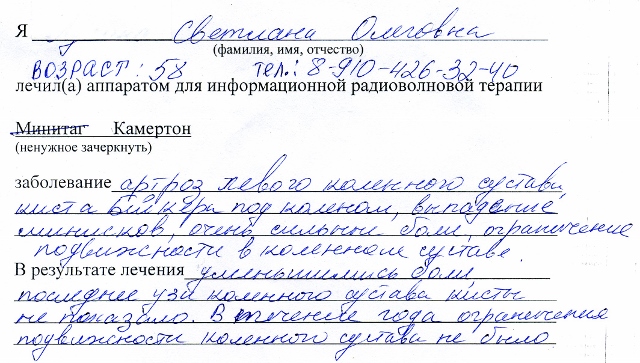 Я Светлана Олеговна
(фамилия, имя, отчество)
ВОЗРАСТ: 58 тел.: 8-910-426-32-40
лечил(а) аппаратом для информационной радиоволновой терапии
Минитаг Камертон
(ненужное зачеркнуть)
заболевание артроз левого коленного сустава,
киста Бейкера под коленом, выпадение
менисков, очень сильные боли, ограничение
подвижности в коленном суставе.
В результате лечения уменьшились боли,
последнее узи коленного сустава кисты
не показало. В течение года ограничения
подвижности коленного сустава не было